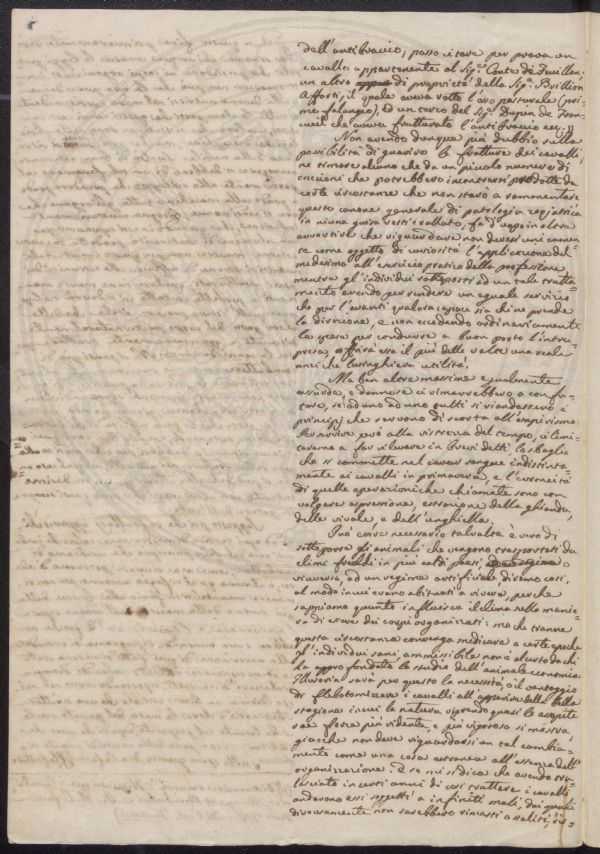 dell'antibraccio; posso citare per prova un
cavallo appartenente al Sig.r Conte de Feuillan,
un altro di proprietà della Sig.a Bullion
il quale aveva rotto l'osso pasturale (pri-
mo falangio), ed un terzo del Sig.r Dupen de Fran-
cueil che aveva fratturato l'antibraccio ecc. ))
Non avendo dunque più dubbio sulla
possibilità di guarire le fratture dei cavalli,
ne timore alcuno che da un piccolo numero di
eccezioni che potrebbero incontrarsi prodotte da
certe circostanze che non starò a rammentare
questo canone generale di patologia
in niuna guisa resti crollato, fa d'uopo inoltre
avvertire che riguardare non devesi unicamen-
te come oggetto di curiosità l'applicazione del
medesimo all'esercizio pratico della professione
mentre gl'individui sottoposti ad un tale tratta-
mento essendo per rendere un eguale servizio
che per l'avanti qualora capace sia chi ne prende
la direzione, e non eccedendo ordinariamente
le spese per condurre a buon porto l'intra-
presa, offrirà essa il più delle volte una reale
anzi che lusinghiera utilità.
Ma ben altre massime egualmente
assurde, e dannose ci rimarrebbero a confu-
tare, se ad uno ad uno tutti si riandassero i
principj che servono di scorta all'empirismo.
Per servire però alla ristrezza del tempo, ci limi-
teremo a far rilevare in brevi detti, lo sbaglio
che si commette nel cavar sangue indistinta-
mente ai cavalli in primavera, e l'erroneità
di quelle operazioni che chiamate sono con
volgare espressione, estrazione delle ghiande,
delle vivole, e dell'unghiella.
Può esser necessario talvolta è vero di
sottoporre gli animali che vengono trasportati da
climi freddi in più caldi paesi, o
viceversa, ad un regime artificiale diremo così,
al modo in cui erano abituati a vivere, perche
sappiamo quanto influisca il clima sulla manie-
ra di essere dei corpi organizzati: ma che tranne
questa circostanza convenga medicare a certe epoche
gl'individui sani, ammissibile non è al certo da chi
ha approfondato lo studio dell'animale economia
Illusoria sarà per questo la necessità, o il vantaggio
di flebotomizzare i cavalli all'apparire della bella
stagione in cui la natura riprendo quasi le assopite
sue forze più ridente, e più vigorosa si mostra,
giacche non deve riguardarsi un tal cambia-
mento come una cosa estranea all'essenza dell'
organizzazione. E se mi si dica che avendo tra-
lasciato in certi anni di così trattare i cavalli
andarono essi soggetti a infiniti mali, dai quali
diversamente non sarebbero rimasti assaliti, ris=